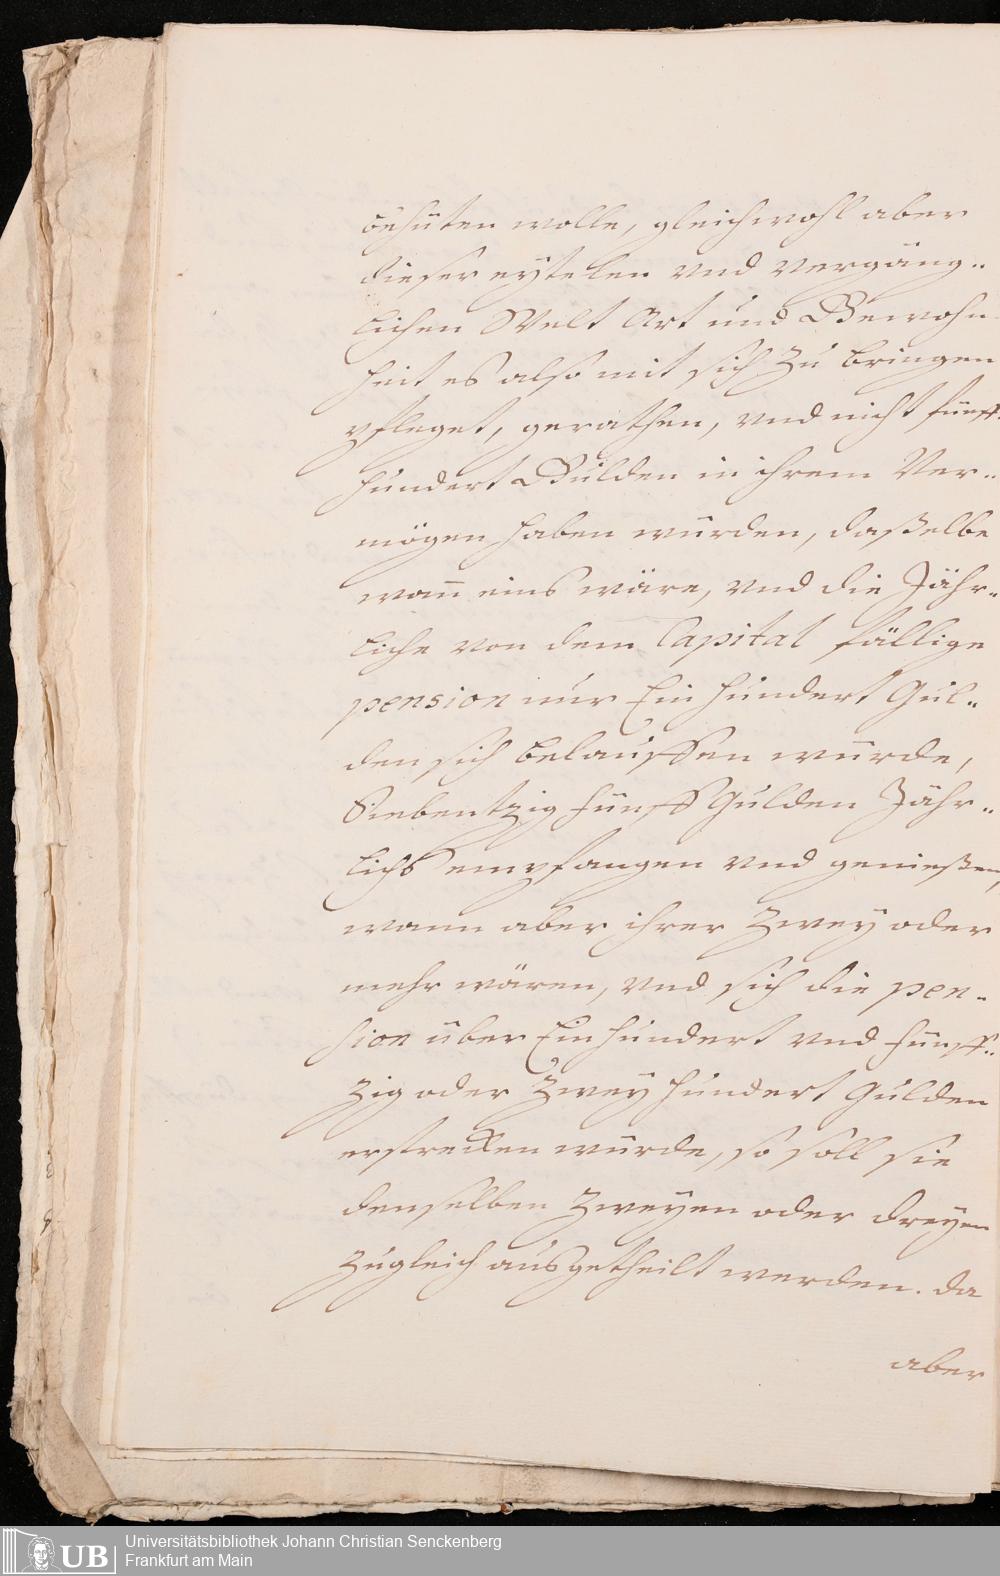 behüten wolle, gleichwohl aber
dieser eytelen vnd vergäng-
lichen Welt Art und Gewohn-
heit es also mit sich zu bringen
pfleget, gerathen, vnd nicht fünff-
hundert Gulden in ihrem Ver-
mögen haben würden, daßelbe
wañ eins wäre, vnd die Jähr-
liche von dem Capital fällige
pension nur Ein hundert Gul-
den sich belauffen würde,
Siebentzig fünff Gulden Jähr-
lichs empfangen vnd genießen,
wann aber ihrer zwey oder
mehr wären, vnd sich die pen-
sion über Ein hundert vnd fünff-
zig oder Zwey hundert Gulden
erstrecken würde, so soll sie
denselben zweyen oder dreyen
zugleich ausgetheilt werden. da
aber
Universitätsbibliothek Johann Christian Senckenberg
Frankfurt am Main
UB